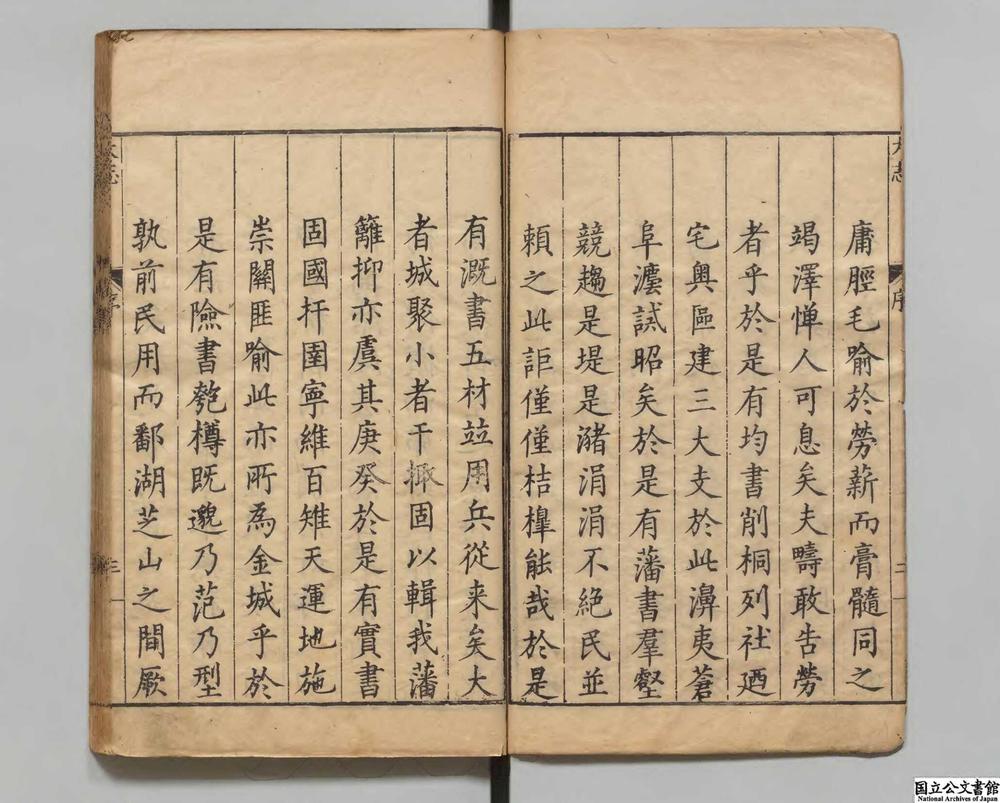 大志
序
二
庸脛毛喻於勞薪而膏髓同之
竭澤惮人可息矣夫疇敢告勞
者乎於是有均書削桐列社廼
宅奥區建三大支於此濞夷蒼
阜灋試昭矣於是有藩書羣壑
競趨是堤是潴涓涓不絶民並
頼之此詎僅僅桔槹能哉於是
有溉書五材竝用兵從来矣大
者城聚小者干掫固以輯我藩
籬抑亦虞其庚癸於是有實書
固國扞圉寧維百雉天運地施
崇關匪喻此亦所為金城乎於
是有險書匏樽既邈乃范乃型
孰前民用而鄱湖芝山之間厥
大志
序
三
国立公文書館
National Archives of Japan